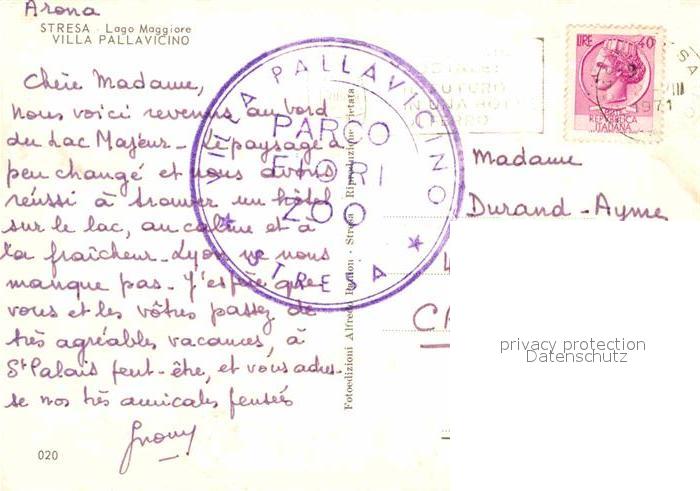 Arona
STRESA - Lago Maggiore
VILLA PALLAVICINO
Chère Madame,
Nous voici revenus au bord
du Lac Majeur - le paysage a
peu changé et nous avons
réussi à trouver un hôtel
sur le lac, au calme et à
la fraîcheur - Lyon ne nous
manque pas - J'espère que
vous et les vôtres passez de
très agréables vacances, à
St Palais peut-être, et vous adres-
se nos très amicales pensées
020
VILLA PALLAVICINO
PARCO
FIORI
ZOO
★ STRESA ★
Fotoedizioni Alfredo - Stresa - Riproduzione vietata
IN UNA
LIRE 40
REPUBBLICA
ITALIANA
1971
Madame
Durand-Ayme
privacy protection
Datenschutz